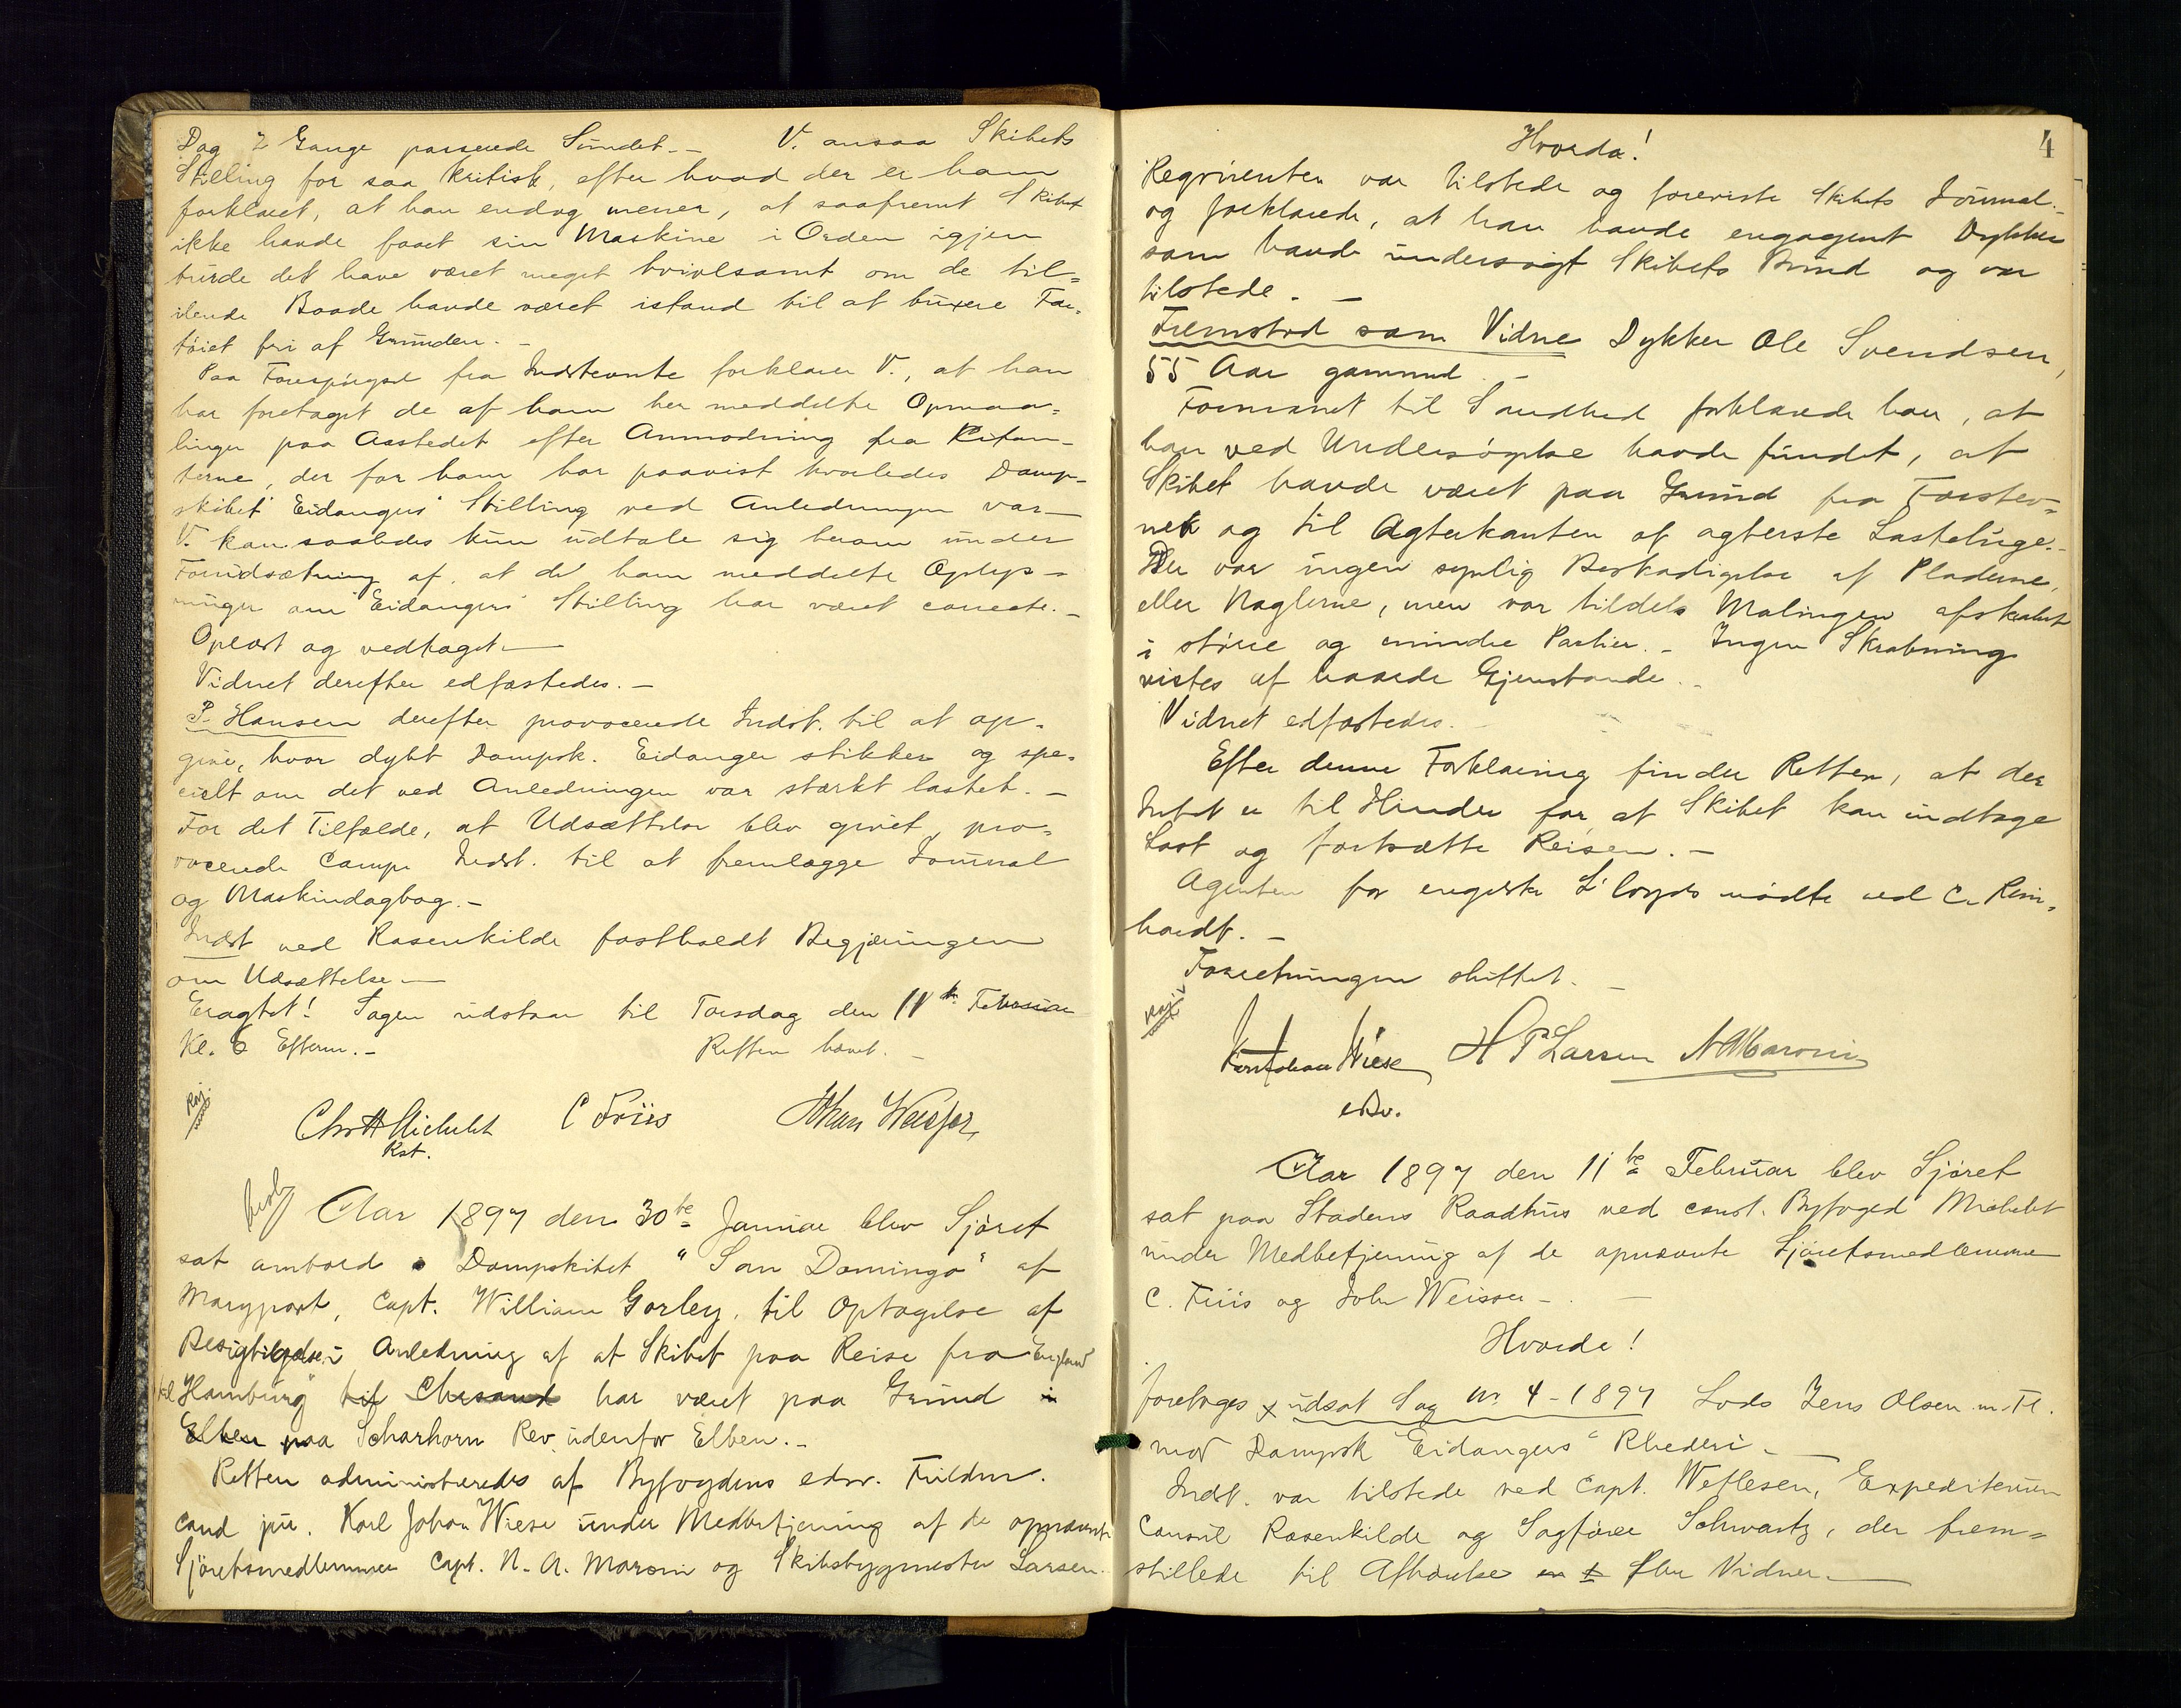 Dag 2 Gange passerede Sundet. – V. ansaa Skibets
Stilling for saa kritisk, efter hvad der er ham
forklaret, at han endog mener, at saafremt Skibet
ikke havde faaet sin Maskine i Orden igjen
burde det have været meget tvivlsomt om de til=
ilende Baade havde været istand til at buxere Far=
tøiet fri af Grunden. –
Paa Forespørgsel fra Indstevnte forklarer V., at han
har foretaget de af ham her meddelte Opmaa=
linger paa Aastedet efter Anmodning fra Citan=
terne, der for ham har paavist hvorledes Damp=
skibet "Eidangers" Stilling ved Anledningen var –
V. kan saaledes kun udtale sig herom under
Forudsætning af, at de ham meddelte Oplys=
ninger om "Eidangers" Stilling har været correcte. –
Oplæst og vedtaget. –
Vidnet derefter edfæstedes. –
P. Hansen derefter provocerede Indst. til at op=
give, hvor dybt Dampsk. Eidanger stikker og spe=
cielt om det ved Anledningen var stærkt lastet. –
For det Tilfælde, at Udsættelse blev givet, pro=
vocerede Comp. Indst. til at fremlægge Journal
og Maskindagbog. –
Indst ved Rosenkilde fastholdt Begjæringen
om Udsættelse –
Eragtet! Sagen udstaar til Torsdag den 11te Februar
Kl. 6 Efterm. – Retten hævet. –
Chr A Michelet C Friis Johan Weisser
Kst.
Aar 1897 den 30te Januar blev Sjøret
sat ombord i Dampskibet "San Domingo" af
Maryport, Capt. William Gorley, til Optagelse af
Besigtigelse i Anledning af at Skibet paa Reise fra England
til Hamburg til Chrsand har været paa Grund i
Elben paa Scharhorn Rev udenfor Elben. –
Retten administreredes af Byfogdens edsv. Fuldm.
cand jur. Karl Johan Wiese under Medbetjening af de opnævnte
Sjøretsmedlemmer Capt. N. A. Maroni og Skibsbygmester Larsen.
4
Hvorda!
Reqvirenten var tilstede og foreviste Skibets Journal. –
og forklarede, at han havde engageret Dykker
som havde undersøgt Skibets Bund og var
tilstede. –
Fremstod som Vidne Dykker Ole Svendsen,
55 Aar gammel. –
Formanet til Sandhed forklarede han, at
han ved Undersøgelse havde fundet, at
Skibet havde været paa Grund fra Forstev=
nen og til Agterkanten af agterste Lasteluge. –
Der var ingen synlig Beskadigelse af Pladerne,
eller Naglerne, men var tildels Malingen afskrabet
i større og mindre Partier. – Ingen Skrabning
vistes af haarde Gjenstande. –
Vidnet edfæstedes. –
Efter denne Forklaring finder Retten, at der
Intet er til Hinder for at Skibet kan indtage
Last og fortsætte Reisen. –
Agenten for engelske Lloyds mødte ved C. Rein=
hardt. –
Forretningen sluttet. –
Karl Johan Wiese H P Larsen N A Maroni
edsv.
Aar 1897 den 11te Februar blev Sjøret
sat paa Stadens Raadhus ved const. Byfoged Michelet
under Medbetjening af de opnævnte Sjøretsmedlemmer
C. Friis og John Weisser – –
Hvorda!
foretages udsat Sag No 4 – 1897 Lods Jens Olsen m. Fl.
mod Dampsk "Eidangers" Rhederi –
Indst. var tilstede ved Capt. Wetlesen, Expediteuren
Consul Rosenkilde og Sagfører Schwartz, der frem=
stillede til Afhørelse flere Vidner. –